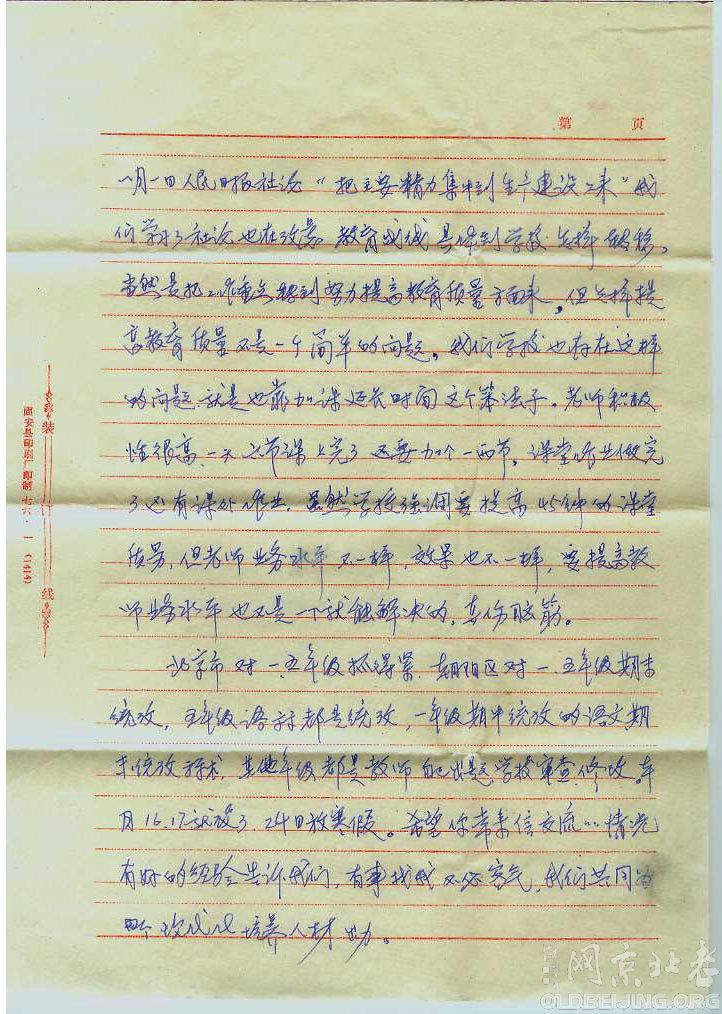 第 页
一月一日人民日报社论“把主要精力集中到生产建设上来”我
们学习了社论也在改善教育战线具体到学校怎样转移。
当然是把工作重点转到努力提高教育质量方面来，但怎样提
高教育质量不是一个简单的问题，我们学校也存在这样
的问题，就是也靠加课延长时间这个笨法子。老师积极
性很高，一天六节课上完了还要加个一两节，课堂作业做完
了还有课外作业。虽然学校强调要提高45钟的课堂
质量，但老师业务水平不一样，效果也不一样，要提高教
师业务水平也不是一下就能解决的，真伤脑筋。
北京市对一、五年级抓得紧，朝阳区对一、五年级期末
统考，五年级语算都是统考，一年级期中统考的语文期
末统考算术，其他年级都是教师自己出题，学校审查修改。本
月16.17试放了，24日放寒假。希望你常来信交流情况
有好的经验告诉我们，有事找我不必客气，我们共同为
四个现代化培养人材努力。
装
线
固安县印刷厂印制 七六·1 (1414)
网京北老
OLDBEIJING.ORG